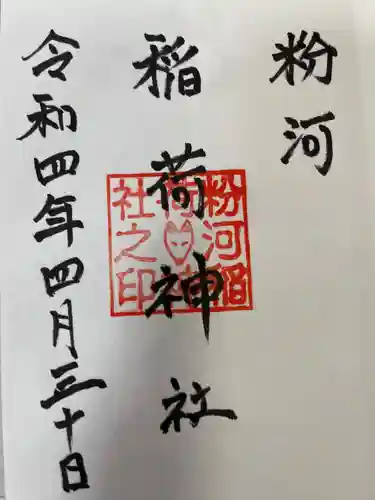 粉河
稲荷神社
令和四年四月三十日
粉河稲
荷神
社之印